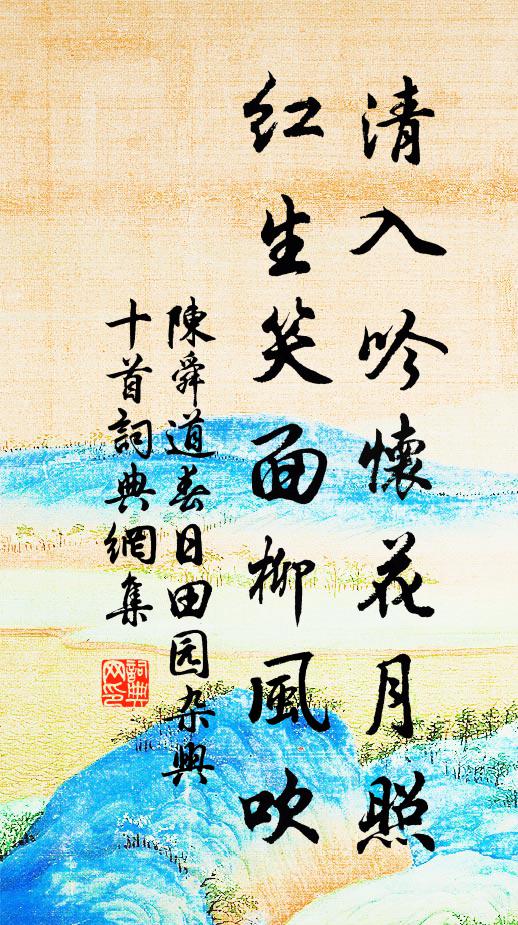 清入吟懷花月照
紅生笑面柳風吹
陳舜道春日田园杂興
十首詞典網集
詞典
网印